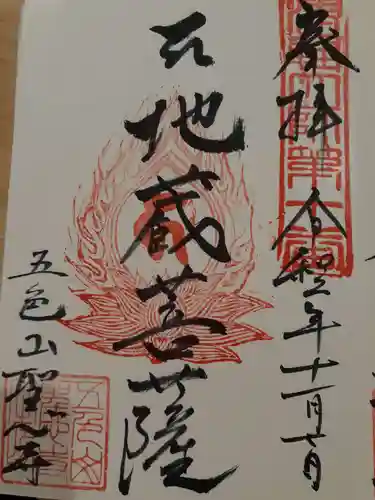 奉拝 令和二年十一月七日
石地蔵菩薩
五色山聖心寺